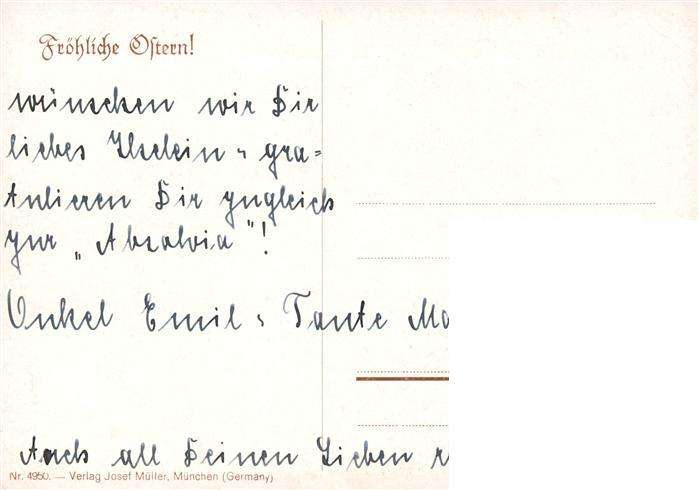 Fröhliche Ostern!
wünschen wir Dir
liebes Ilselein u. gra=
tulieren Dir zugleich
zur „Absolvia"!
Onkel Emil u. Tante
Auch all Deinen Lieben
Nr. 4950. — Verlag Josef Müller, München (Germany)